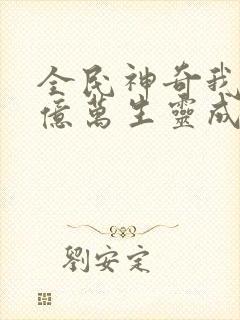 全民神奇我
億萬生靈成
劉安定